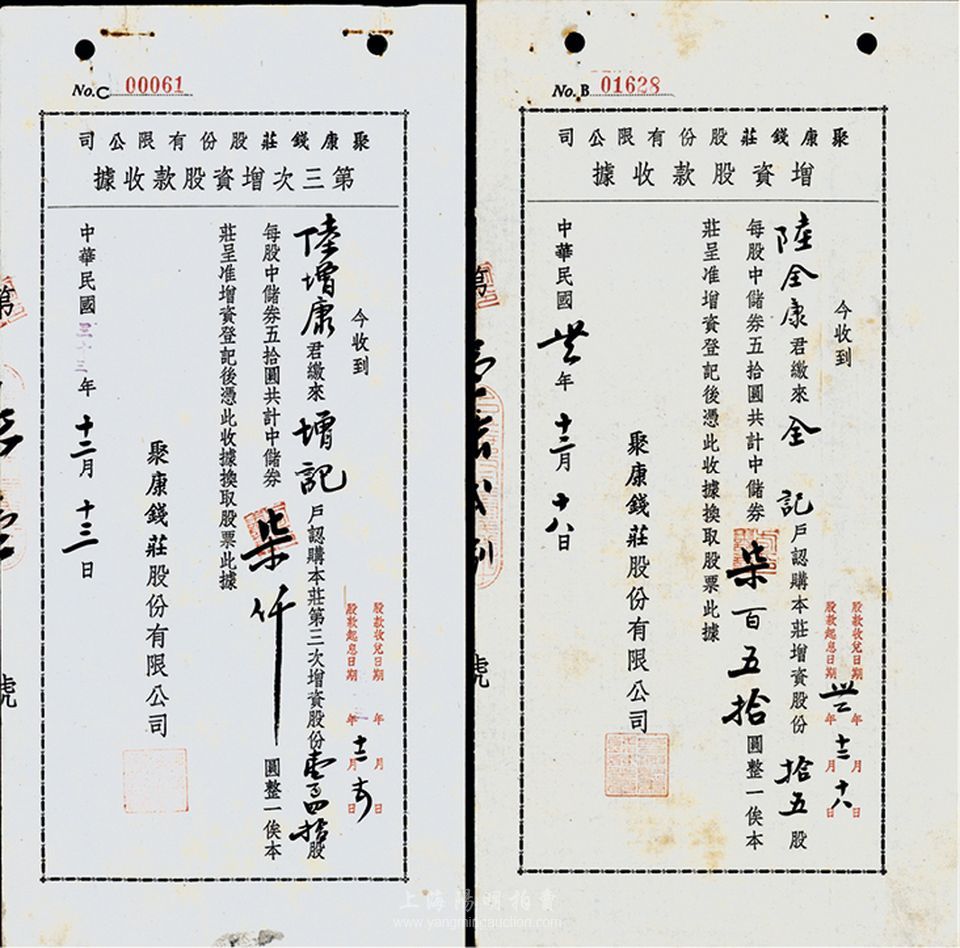 No. C 00061
聚康錢莊股份有限公司
第三次增資股款收據
今收到
陸增康君繳來增記戶認購本莊第三次增資股份壹百四拾股
每股中儲券五拾圓共計中儲券柒仟圓整一俟本
莊呈准增資登記後憑此收據換取股票此據
股款收兌日期 年 月 日
股款起息日期 年 十二月 日
聚康錢莊股份有限公司
中華民國三十三年十二月十三日
第
號
No. B 01628
聚康錢莊股份有限公司
增資股款收據
今收到
陸全康君繳來全記戶認購本莊增資股份拾五股
每股中儲券五拾圓共計中儲券柒百五拾圓整一俟本
莊呈准增資登記後憑此收據換取股票此據
股款收兌日期 年 月 日
股款起息日期 年十二月十八日
聚康錢莊股份有限公司
中華民國 年十二月十八日
第
號
上海陽明拍賣
www.yangmingauction.com